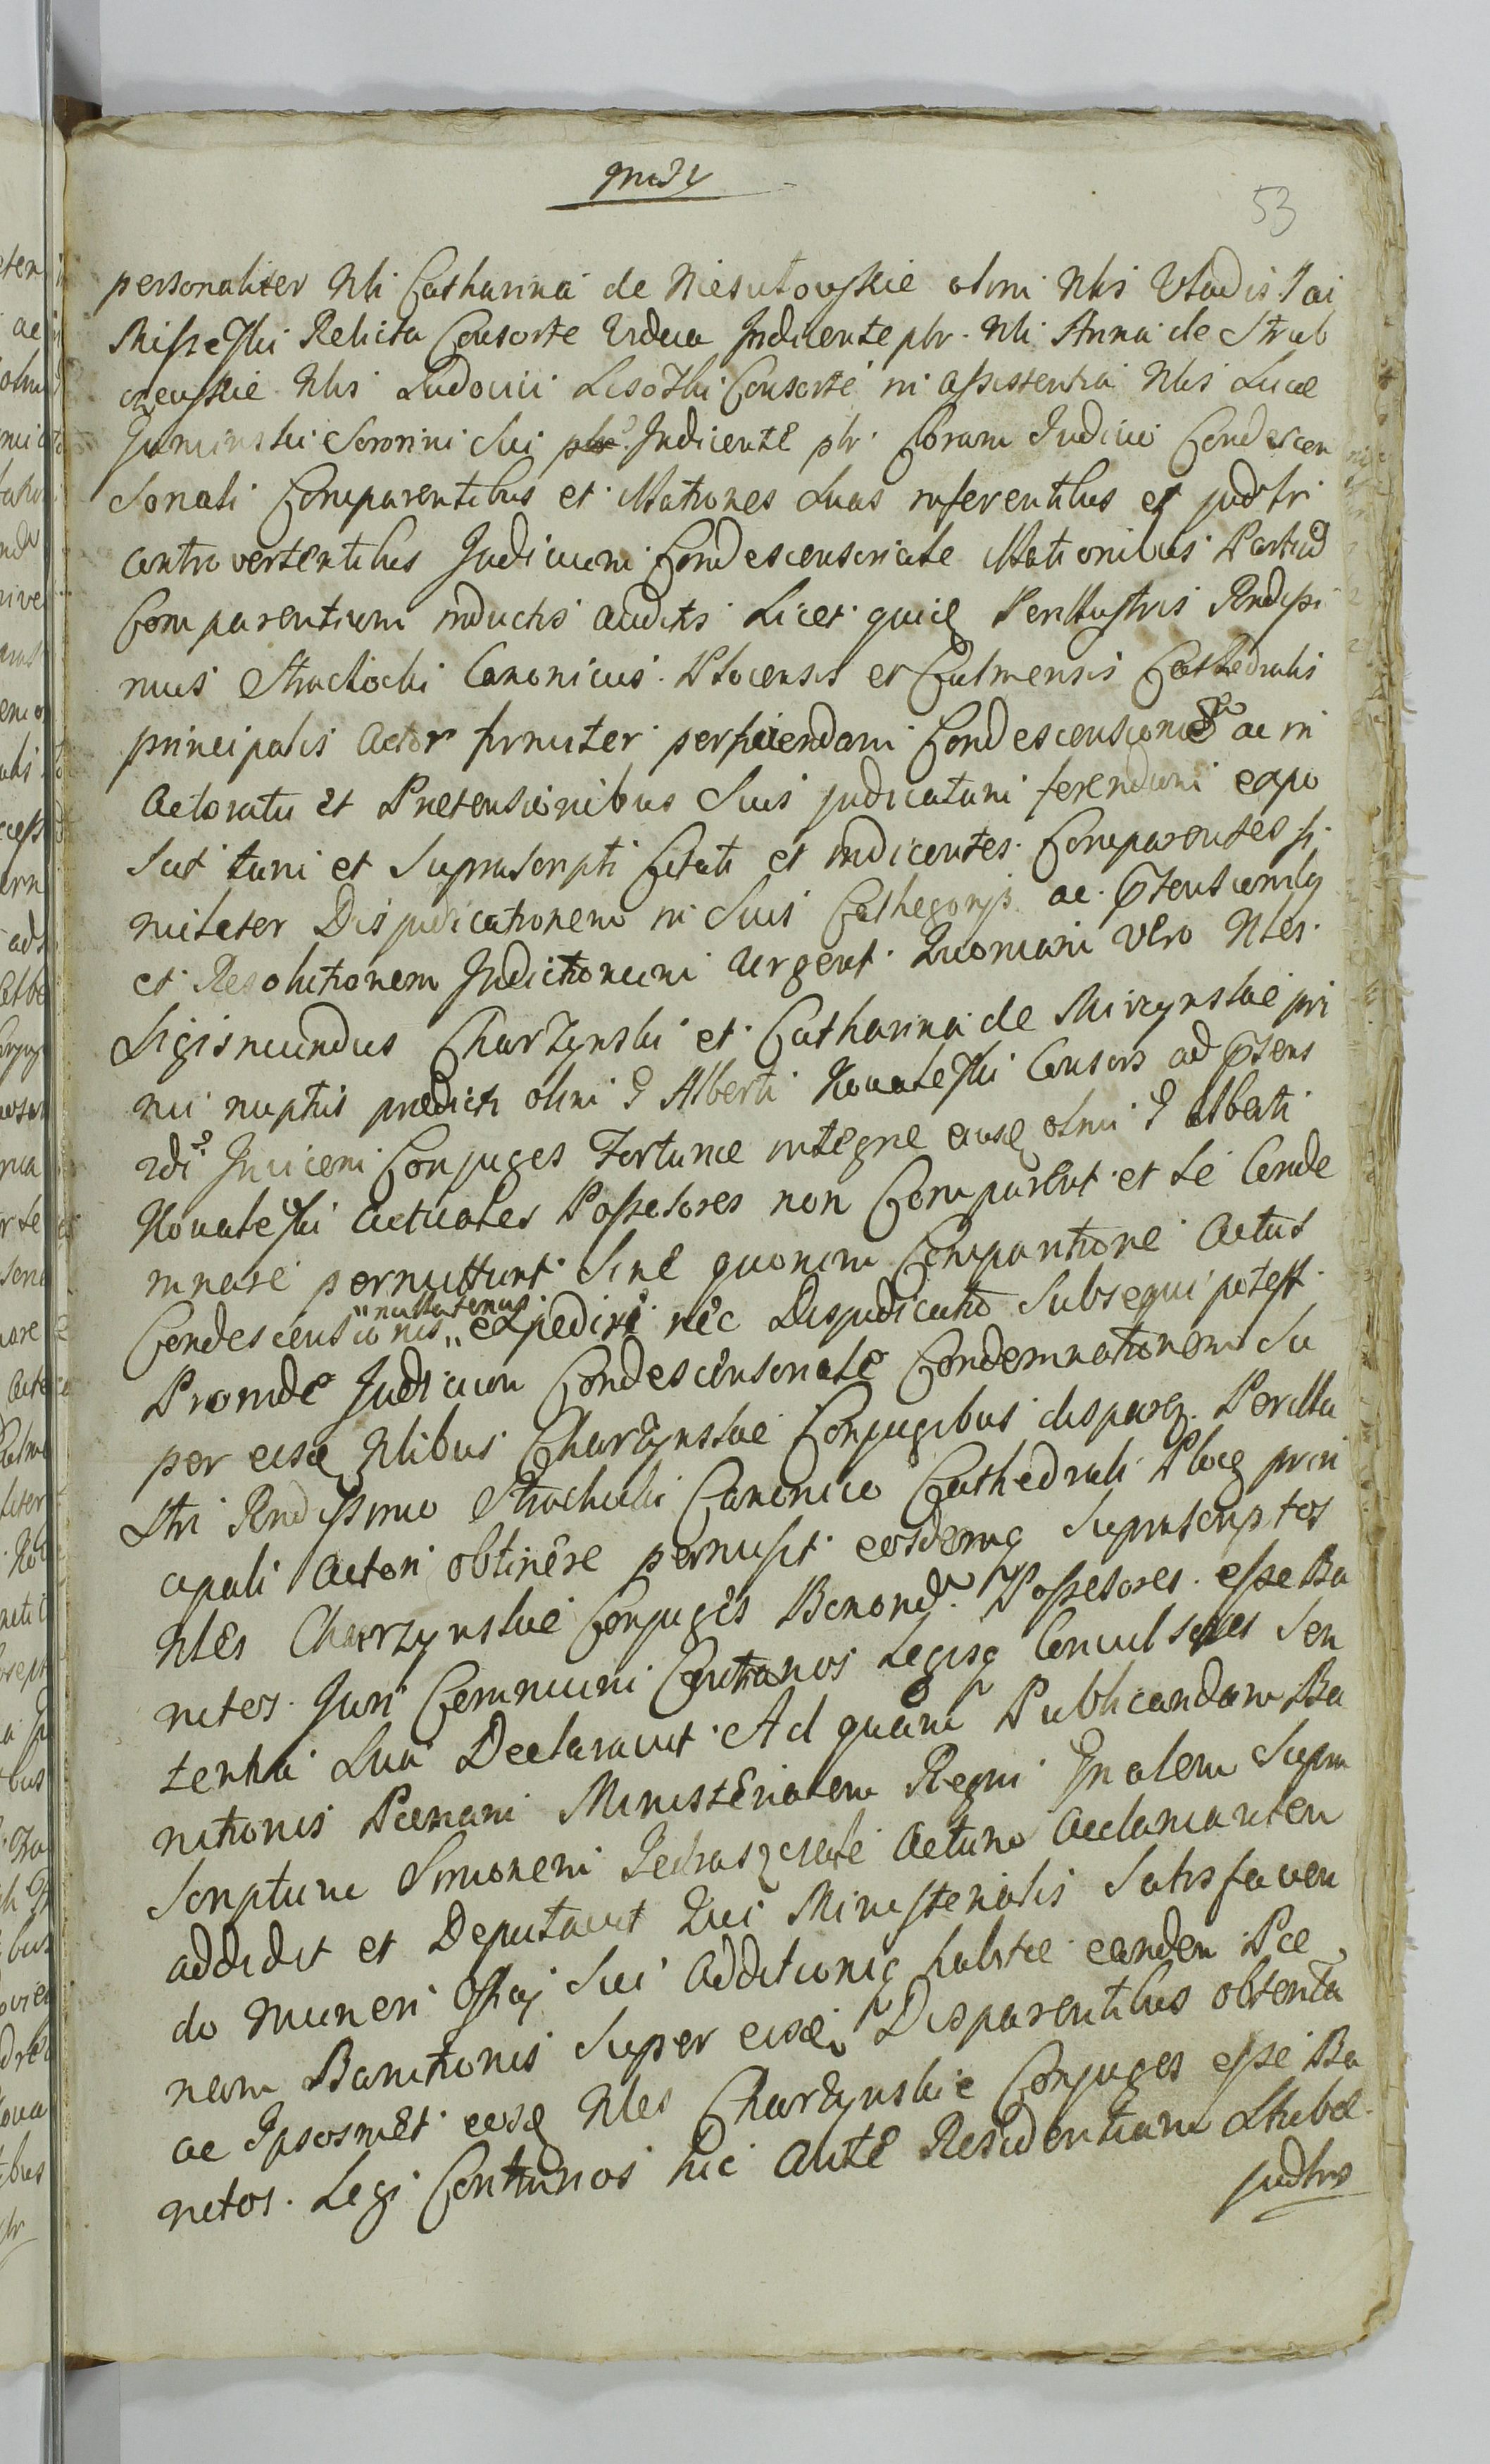 53
personaliter Nli Catharina de Niesułowskie olim Nlis Vladislai
Misseski Relicta Consorte Vidua Indicente plr. Nli Anna de Strub
czewskie Nlis Ludovici Lisozki Consorte in assistentia Nlis Lucæ
Jaminski Sororini Sui Indicente plr. Coram Judicio Condescen
sonali Comparentibus et Illationes Suas inferentibus et judtr
controvertentibus Judicium Condescensoriale Illationibus Partiū
Comparentium inductis auditis Licet quidq Perillustris Rndissi
mus Strachocki Canonicus Plocensis et Culmensis Cathedralis
principalis Actor firmiter perficiendam Condescensionē ac in
Actoratu et Prætensionibus Suis judicatum ferendum expo
scit tum et Suprascripti Citati et indicentes Comparentes si
militer Disjudicationem in Suis Cathegorijs ac
et Resolutionem Indictionum Urgent Quoniam vero Nles
Sigismundus Charzynski et Catharina de Mirzynskie pri
mi nuptus prædicti olim G Alberti Nowaleski Consors ad
2di Invicem Conjuges Fortunæ integræ eiusq olim G Alberti
Nowaleski Actuales Possesores non Comparent et Se Conde
mnare permittunt Sine quorum Comparitione Actus
Condescensionis "nullatenus" expediri nec Disjudicatio Subsequi potest
Proinde Judicium Condescensoriale Condemnationem Su
per eisdq Nlibus Charzynskie Conjugibus disparen. Perillu
stri Rndissimo Strachocki Canonico Cathedrali Ploc prin
cipali Actori obtinere permisit eosdemq Suprascriptos
Nles Charzynskie Conjuges Bonorum Possesores esse Ba
nitos Juri Communi Contrarios Legisq Conculsores Sen
tentia Sua Declaravit Ad quam Publicandam Ba
nitionis Pænam Ministerialem Regni Gnalem Supra
Scriptum Simonem Jedraszczak Actum Acclamantem
addidit et Deputavit Qui Ministerialis Satisfacien
do Muneri Officij Sui Additioniq habitæ eandem Pæ
nam Banitionis Super eisdem Disparentibus obtenta
ac Ipsosmet eosdq Nles Charzynskie Conjuges esse Ba
nitos Legi Contrarios hic Ante Residentiam Stubæ
judtris